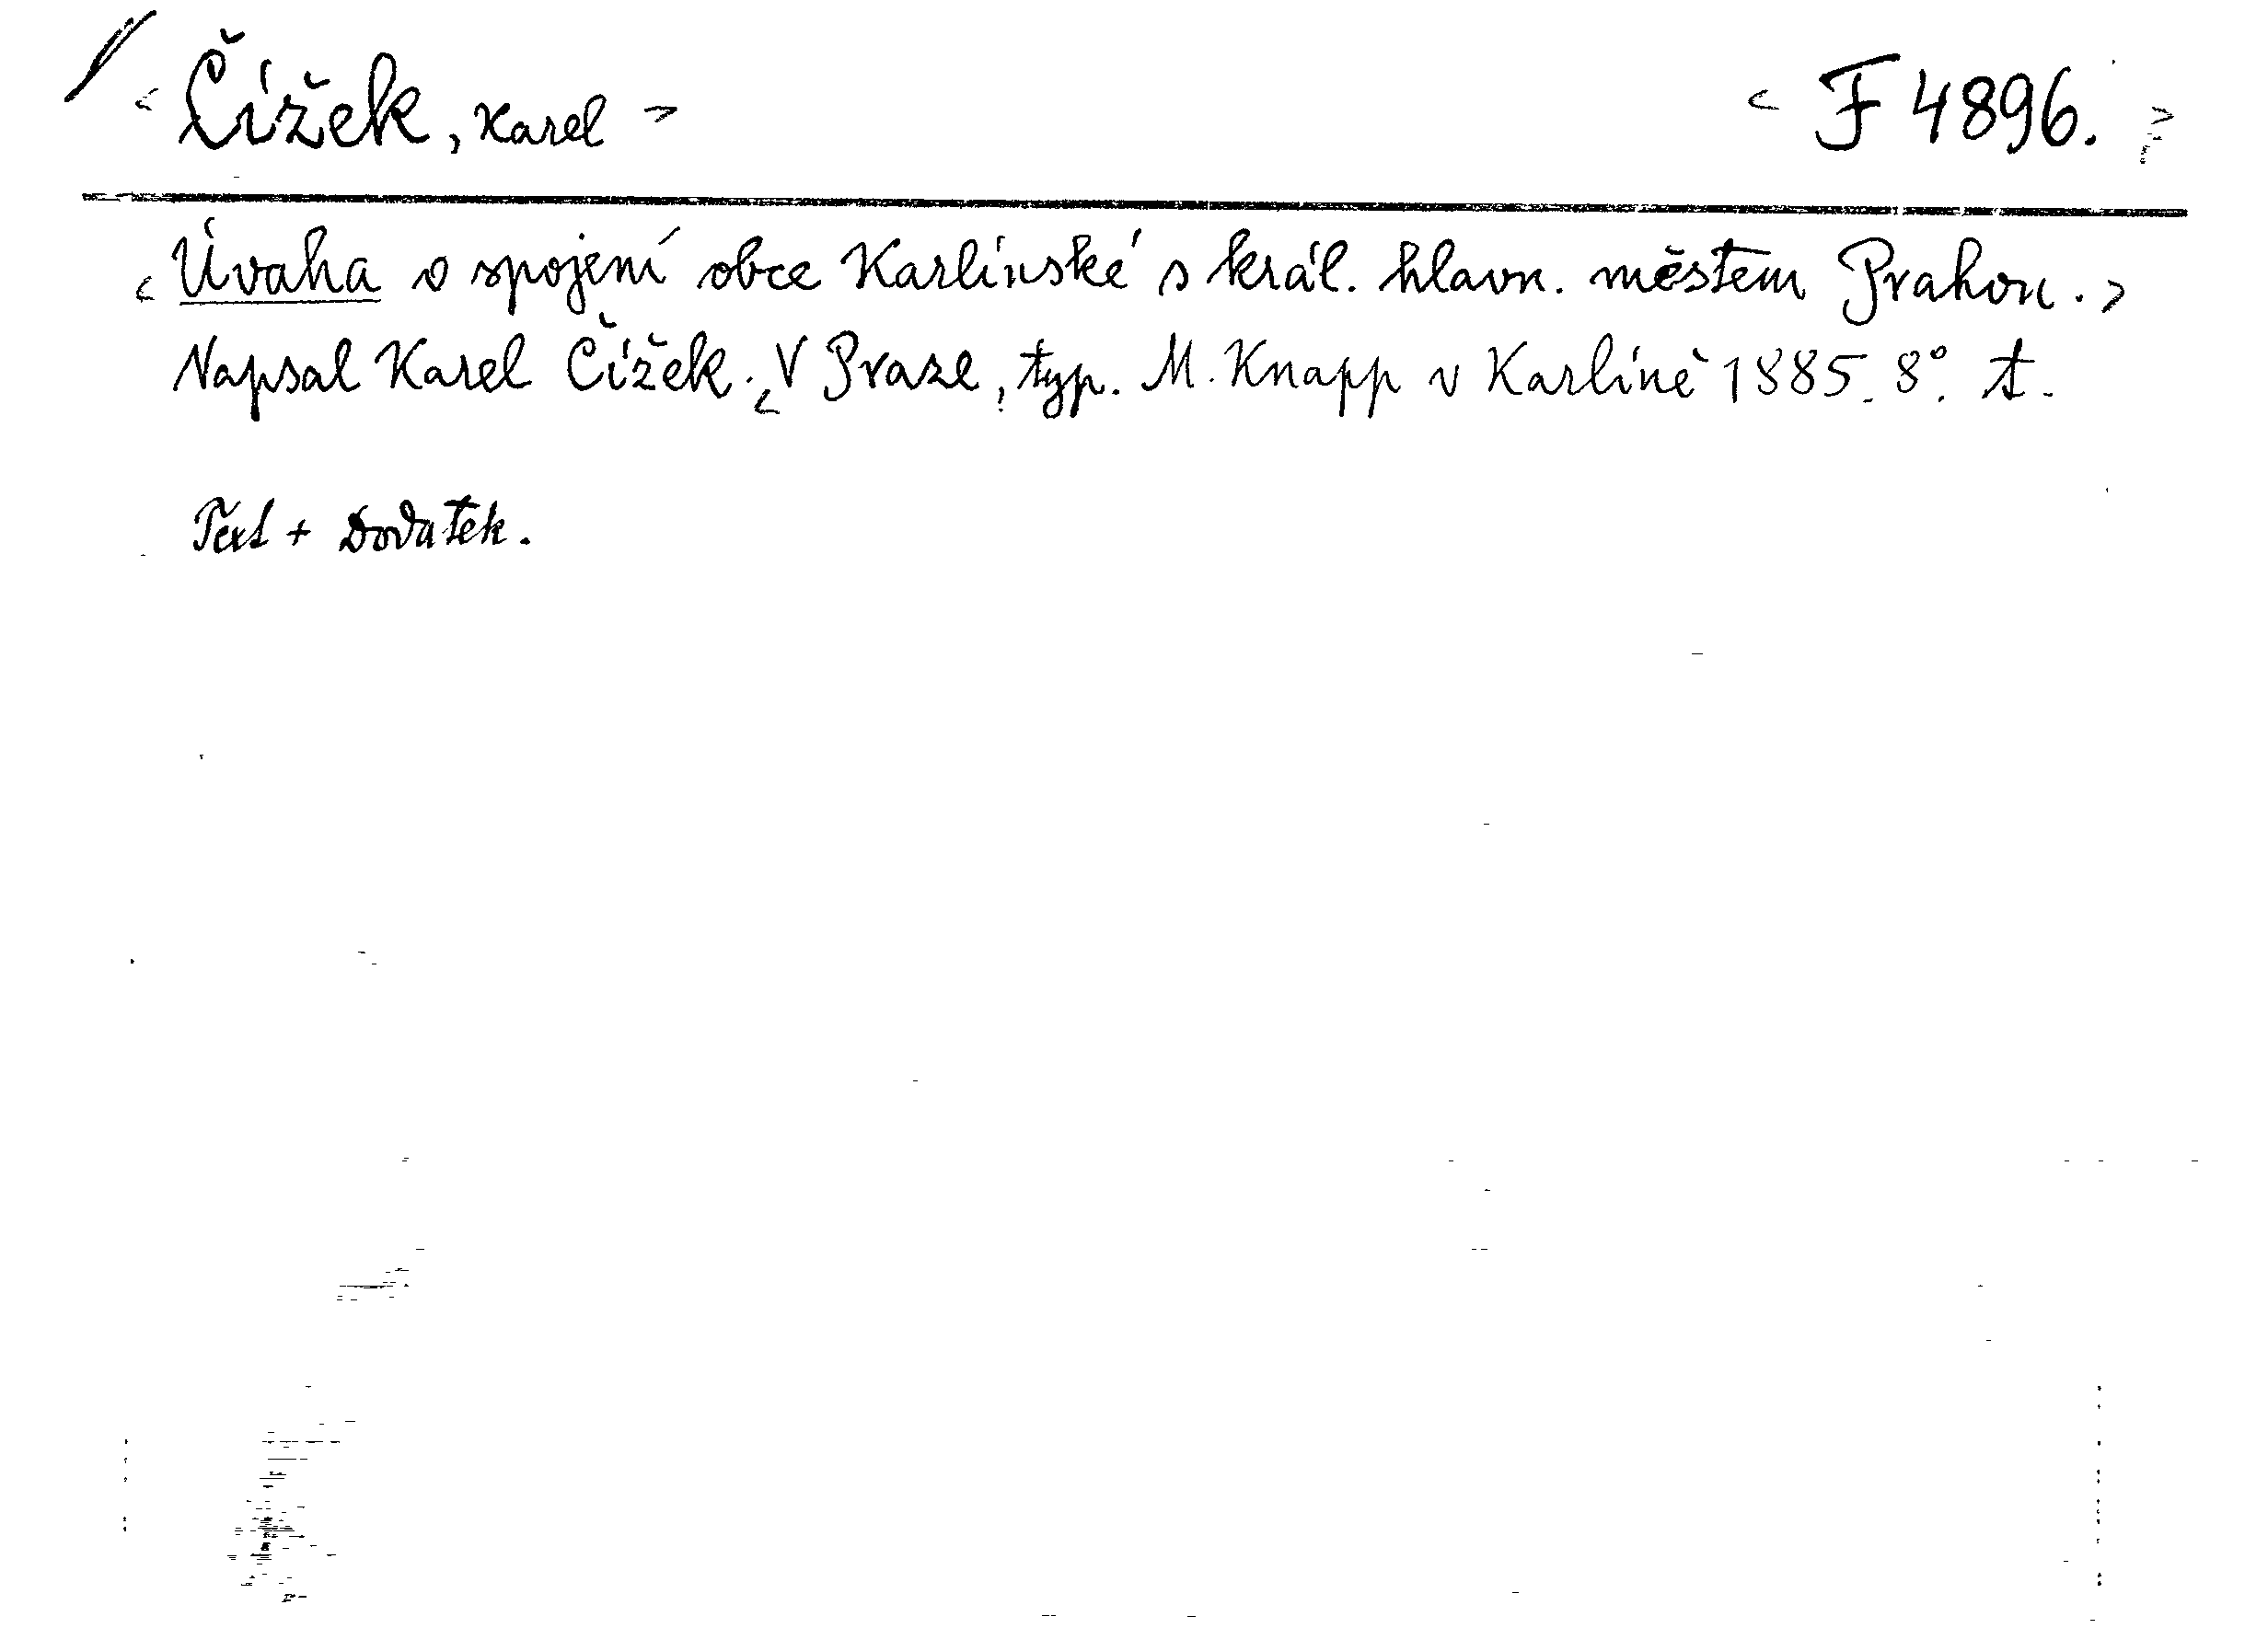 < Čížek, Karel > < F 4896. >
< Úvaha o spojení obce Karlínské s král. hlavn. městem Prahou. >
Napsal Karel Čížek. < V Praze, typ. M. Knapp v Karlíně 1885. 8°. t.
Text + Dodatek.